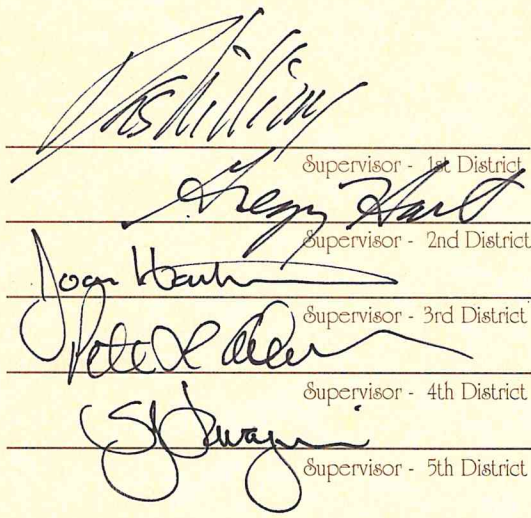 Das Williams
Supervisor - 1st District
Gregg Hart
Supervisor - 2nd District
Joan Hartmann
Supervisor - 3rd District
Supervisor - 4th District
Supervisor - 5th District